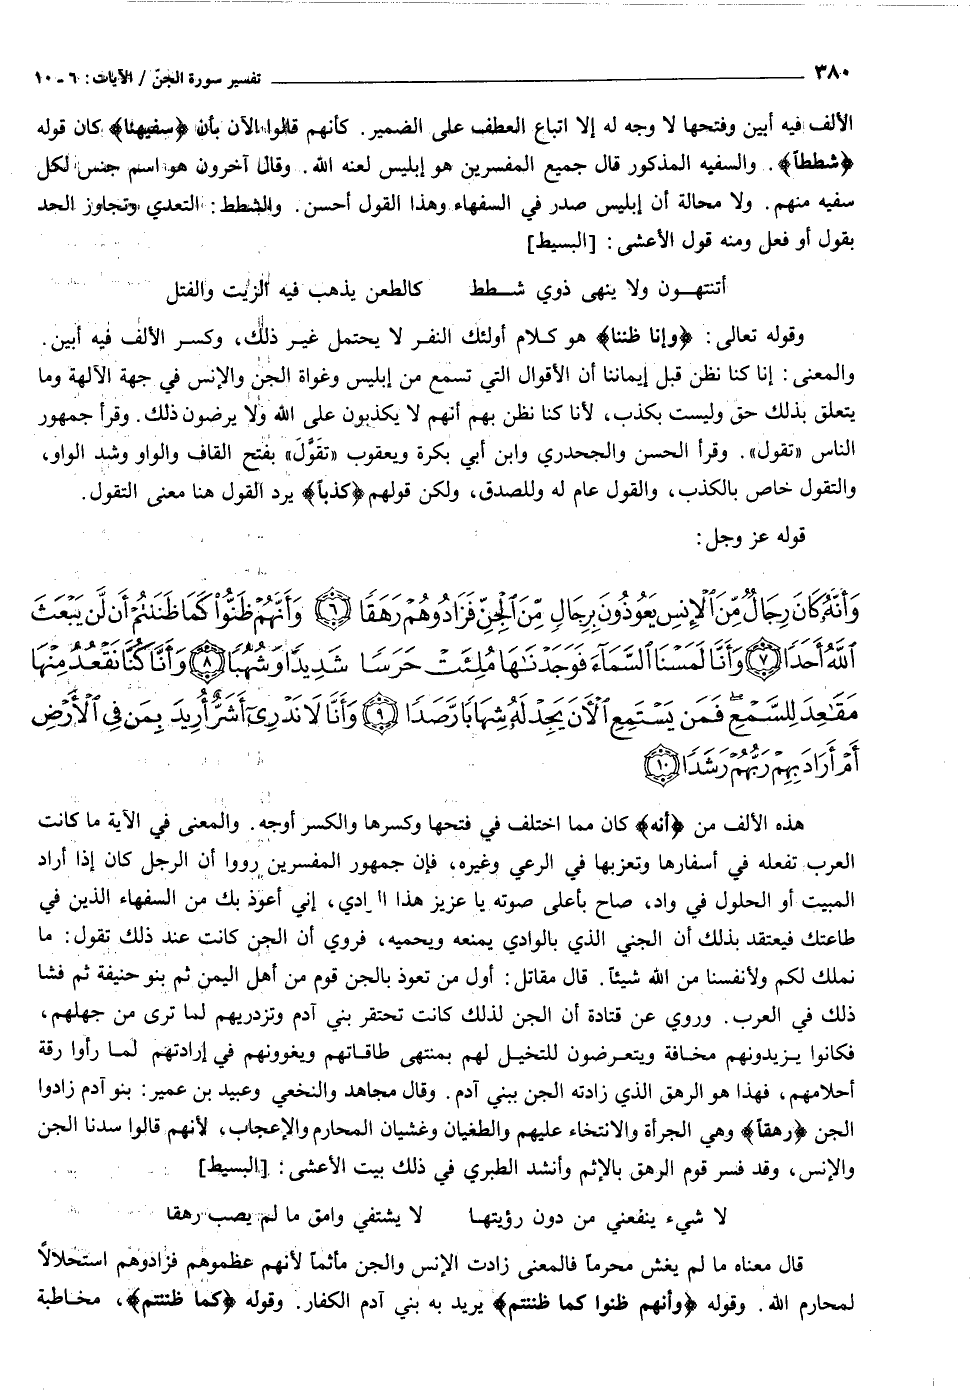 ٣٨٠ تفسير سورة الجنّ / الآيات: ٦ - ١٠
الألف فيه أبين وفتحها لا وجه له إلا اتباع العطف على الضمير. كأنهم قالوا الآن بأن ﴿سفيهنا﴾ كان قوله
﴿شططاً﴾. والسفيه المذكور قال جميع المفسرين هو إبليس لعنه الله. وقال آخرون هو اسم جنس لكل
سفيه منهم. ولا محالة أن إبليس صدر في السفهاء وهذا القول أحسن. والشطط: التعدي وتجاوز الحد
بقول أو فعل ومنه قول الأعشى: [البسيط]
أتنتهــون ولا ينهى ذوي شــطط كالطعن يذهب فيه الزيت والفتل
وقوله تعالى: ﴿وإنا ظننا﴾ هو كـلام أولئك النفـر لا يحتمل غيـر ذلك، وكسـر الألف فيه أبين.
والمعنى: إنا كنا نظن قبل إيماننا أن الأقوال التي تسمع من إبليس وغواة الجن والإنس في جهة الآلهة وما
يتعلق بذلك حق وليست بكذب، لأنا كنا نظن بهم أنهم لا يكذبون على الله ولا يرضون ذلك. وقرأ جمهور
الناس «تقول». وقرأ الحسن والجحدري وابن أبي بكرة ويعقوب «تَقَوَّلَ» بفتح القاف والواو وشد الواو،
والتقول خاص بالكذب، والقول عام له وللصدق، ولكن قولهم ﴿كذباً﴾ يرد القول هنا معنى التقول.
قوله عز وجل:
وَأَنَّهُۥ كَانَ رِجَالٌ مِّنَ ٱلْإِنسِ يَعُوذُونَ بِرِجَالٍ مِّنَ ٱلْجِنِّ فَزَادُوهُمْ رَهَقًا ﴿٦﴾ وَأَنَّهُمْ ظَنُّوا۟ كَمَا ظَنَنتُمْ أَن لَّن يَبْعَثَ
ٱللَّهُ أَحَدًا ﴿٧﴾ وَأَنَّا لَمَسْنَا ٱلسَّمَآءَ فَوَجَدْنَٰهَا مُلِئَتْ حَرَسًا شَدِيدًا وَشُهُبًا ﴿٨﴾ وَأَنَّا كُنَّا نَقْعُدُ مِنْهَا
مَقَٰعِدَ لِلسَّمْعِ ۖ فَمَن يَسْتَمِعِ ٱلْآنَ يَجِدْ لَهُۥ شِهَابًا رَّصَدًا ﴿٩﴾ وَأَنَّا لَا نَدْرِىٓ أَشَرٌّ أُرِيدَ بِمَن فِى ٱلْأَرْضِ
أَمْ أَرَادَ بِهِمْ رَبُّهُمْ رَشَدًا ﴿١٠﴾
هذه الألف من ﴿أنه﴾ كان مما اختلف في فتحها وكسرها والكسر أوجه. والمعنى في الآية ما كانت
العرب تفعله في أسفارها وتعزبها في الرعي وغيره، فإن جمهور المفسرين رووا أن الرجل كان إذا أراد
المبيت أو الحلول في واد، صاح بأعلى صوته يا عزيز هذا الوادي، إني أعوذ بك من السفهاء الذين في
طاعتك فيعتقد بذلك أن الجني الذي بالوادي يمنعه ويحميه، فروي أن الجن كانت عند ذلك تقول: ما
نملك لكم ولأنفسنا من الله شيئاً. قال مقاتل: أول من تعوذ بالجن قوم من أهل اليمن ثم بنو حنيفة ثم فشا
ذلك في العرب. وروي عن قتادة أن الجن لذلك كانت تحتقر بني آدم وتزدريهم لما ترى من جهلهم،
فكانوا يـزيدونهم مخـافة ويتعـرضون للتخيـل لهم بمنتهى طاقـاتهم ويغوونهم في إرادتهم لمـا رأوا رقة
أحلامهم، فهذا هو الرهق الذي زادته الجن ببني آدم. وقال مجاهد والنخعي وعبيد بن عمير: بنو آدم زادوا
الجن ﴿رهقاً﴾ وهي الجرأة والانتخاء عليهم والطغيان وغشيان المحارم والإعجاب، لأنهم قالوا سدنا الجن
والإنس، وقد فسر قوم الرهق بالإثم وأنشد الطبري في ذلك بيت الأعشى: [البسيط]
لا شيء ينفعني من دون رؤيتهـا لا يشتفي وامق ما لم يصب رهقا
قال معناه ما لم يغش محرماً فالمعنى زادت الإنس والجن مأثماً لأنهم عظموهم فزادوهم استحلالاً
لمحارم الله. وقوله ﴿وأنهم ظنوا كما ظننتم﴾ يريد به بني آدم الكفار. وقوله ﴿كما ظننتم﴾، مخـاطبة